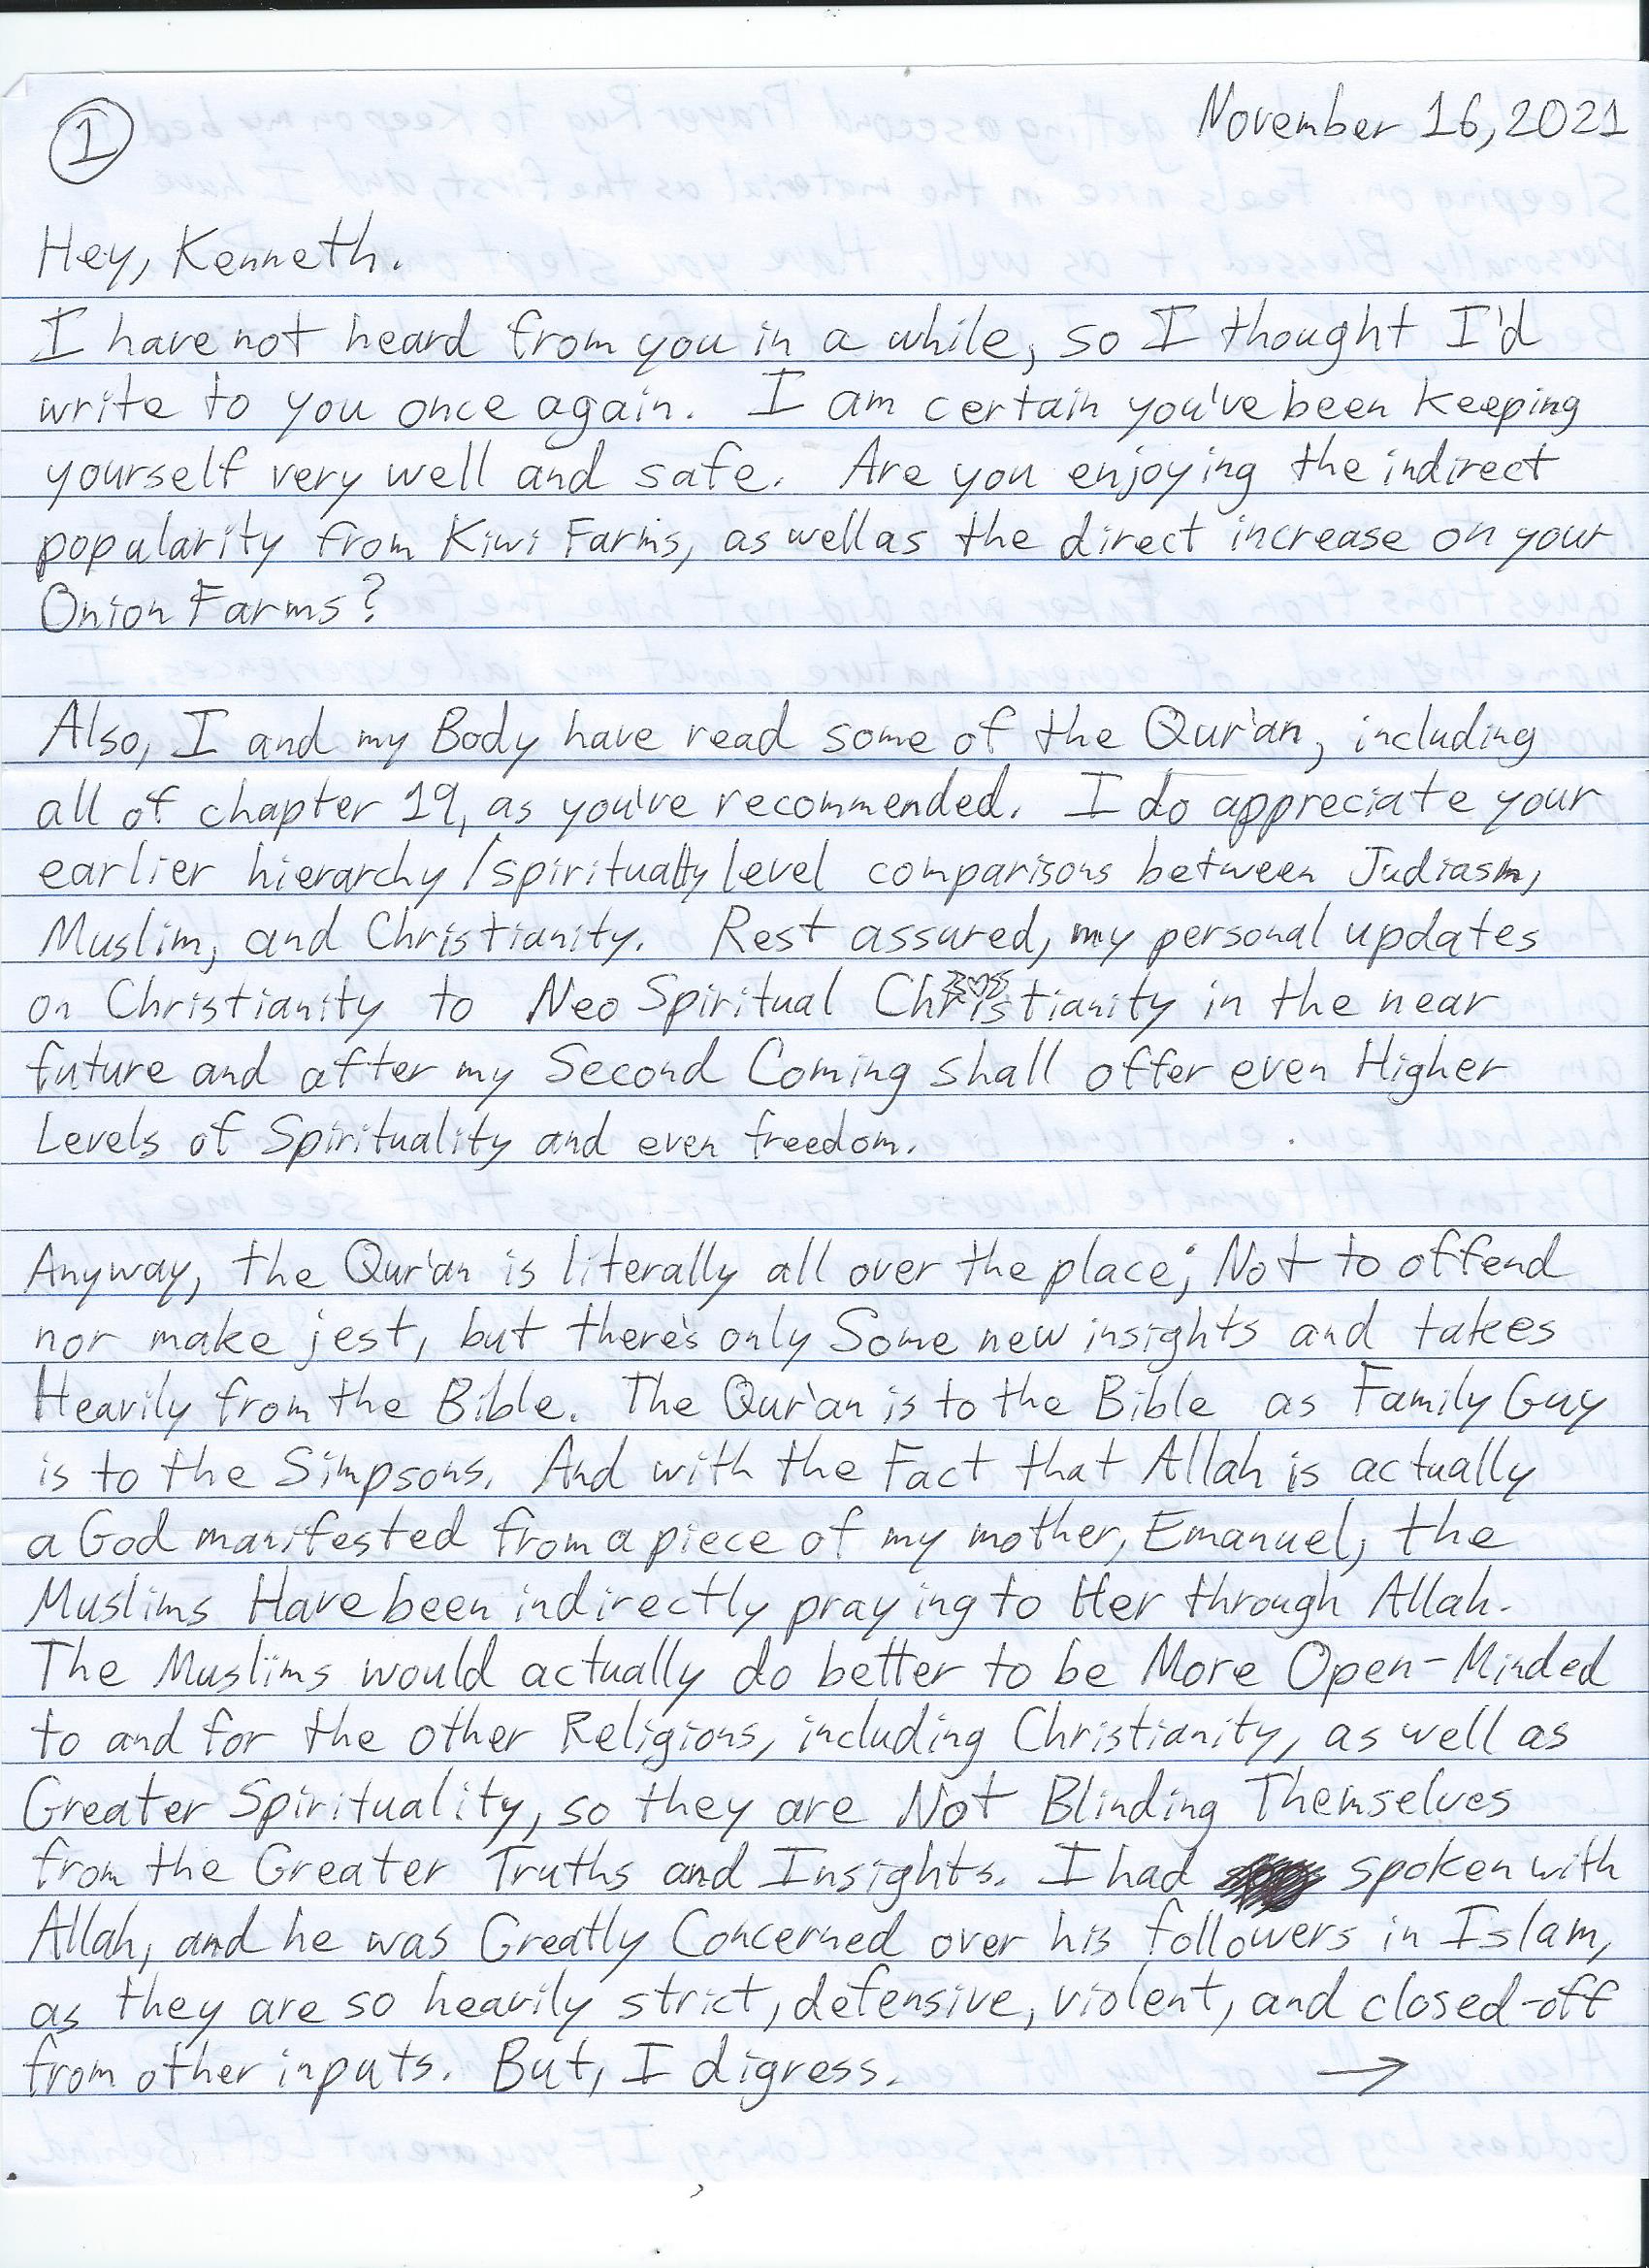 1
November 16, 2021
Hey, Kenneth.
I have not heard from you in a while, so I thought I'd
write to you once again. I am certain you've been keeping
yourself very well and safe. Are you enjoying the indirect
popularity from Kiwi Farms, as well as the direct increase on your
Onion Farms?
Also, I and my Body have read some of the Qur'an, including
all of chapter 19, as you've recommended. I do appreciate your
earlier hierarchy/spiritually level comparisons between Judiasm,
Muslim, and Christianity. Rest assured, my personal updates
on Christianity to Neo Spiritual Christianity in the near
future and after my Second Coming shall offer even Higher
Levels of Spirituality and even freedom.
Anyway, the Qur'an is literally all over the place; Not to offend
nor make jest, but there's only Some new insights and takes
Heavily from the Bible. The Qur'an is to the Bible as Family Guy
is to the Simpsons. And with the Fact that Allah is actually
a God manifested from a piece of my mother, Emanuel, the
Muslims Have been indirectly praying to Her through Allah.
The Muslims would actually do better to be More Open-Minded
to and for the other Religions, including Christianity, as well as
Greater Spirituality, so they are Not Blinding Themselves
from the Greater Truths and Insights. I had spoken with
Allah, and he was Greatly Concerned over his followers in Islam,
as they are so heavily strict, defensive, violent, and closed-off
from other inputs. But, I digress. →